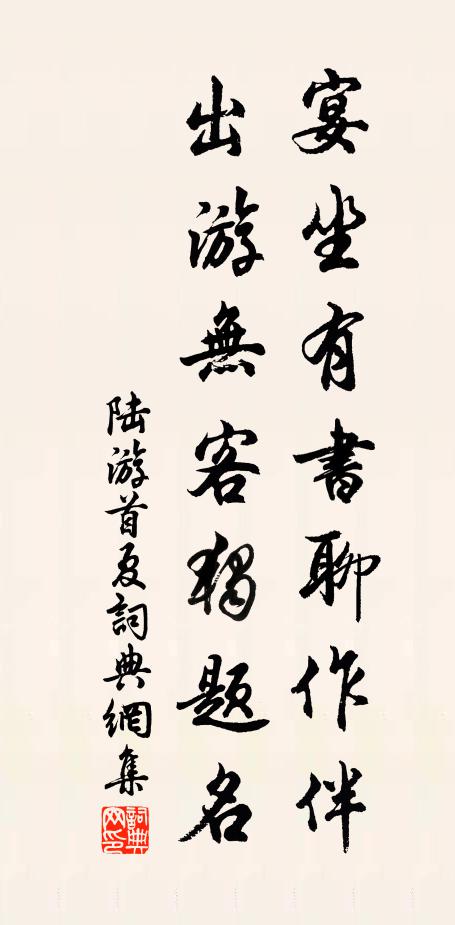 宴坐有書聊作伴
出游無客獨題名
陆游首夏詞典網集
詞典網印